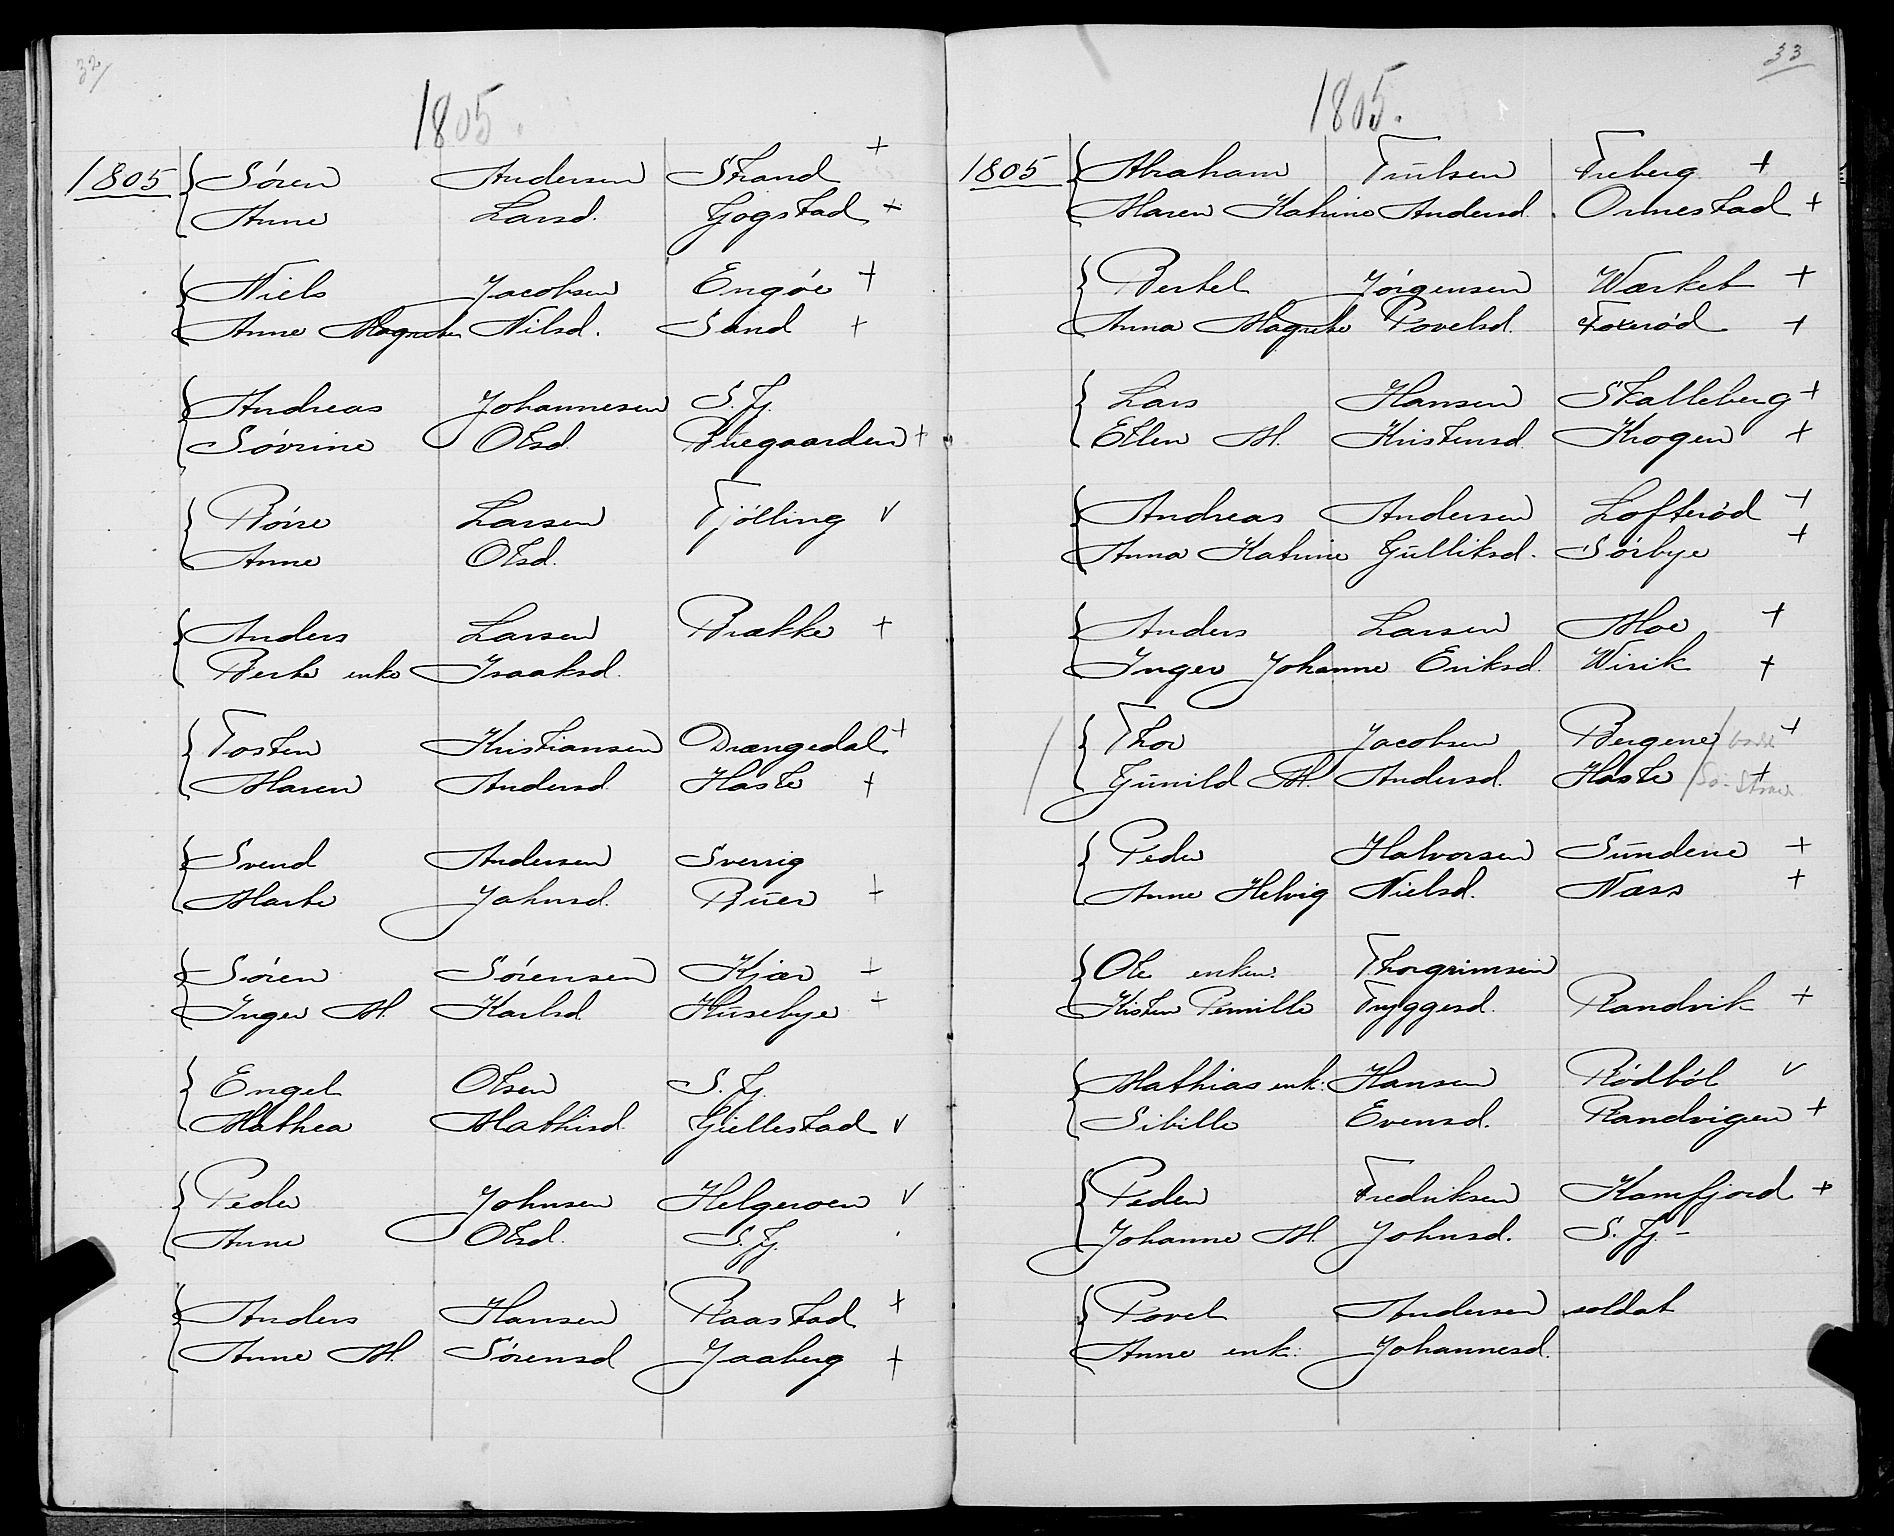 32
1805.
1805 Sören Andersen Strand +
Anne Larsd. Gogstad +
Niels Jacobsen Engöe +
Anne Magrethe Nilsd. Sand +
Andreas Johannesen S. Fj.
Sövrine Olsd. Bruegaarden +
Börre Larsen Tjölling v
Anne Olsd.
Anders Larsen Brække +
Berte enke Isaaksd.
Tosten Kristiansen Drangedal +
Maren Andersd. Haste +
Svend Andersen Sverrig
Marte Johnsd. Buer +
Sören Sörensen Kjær +
Inger M. Karlsd. Husebye +
Engel Olsen S. Fj.
Mathea Mathisd. Gjellestad v
Peder Johnsen Helgeroen v
Anne Olsd. S. Fj.
Anders Hansen Raastad +
Anne M. Sörensd. Jaaberg +
33
1805.
1805 Abraham Trulsen Freberg +
Maren Katrine Andersd. Ormestad +
Bertel Jörgensen Wærket +
Anna Magrete Povelsd. Foxeröd +
Lars Hansen Skalleberg +
Ellen M. Kristensd. Krogen +
Andreas Andersen Lofteröd +
Anna Katrine Gulliksd. Sörbye +
Anders Larsen Moe +
Inger Johanne Eriksd. Wirik +
Thor Jacobsen Bergene / +
Gunild M. Andersd. Haste / +
Peder Halvorsen Sundene +
Anne Helvig Nielsd. Næss +
Ole enkem: Thorgrimsen
Kisten Pernille Tryggesd. Randvik +
Mathias enk: Hansen Rödböl v
Sibille Evensd. Randvigen +
Peder Fredriksen Kamfjord +
Johanne M. Johnsd. S. Fj. -
Povel Andersen soldat
Anne enk: Johannesd.